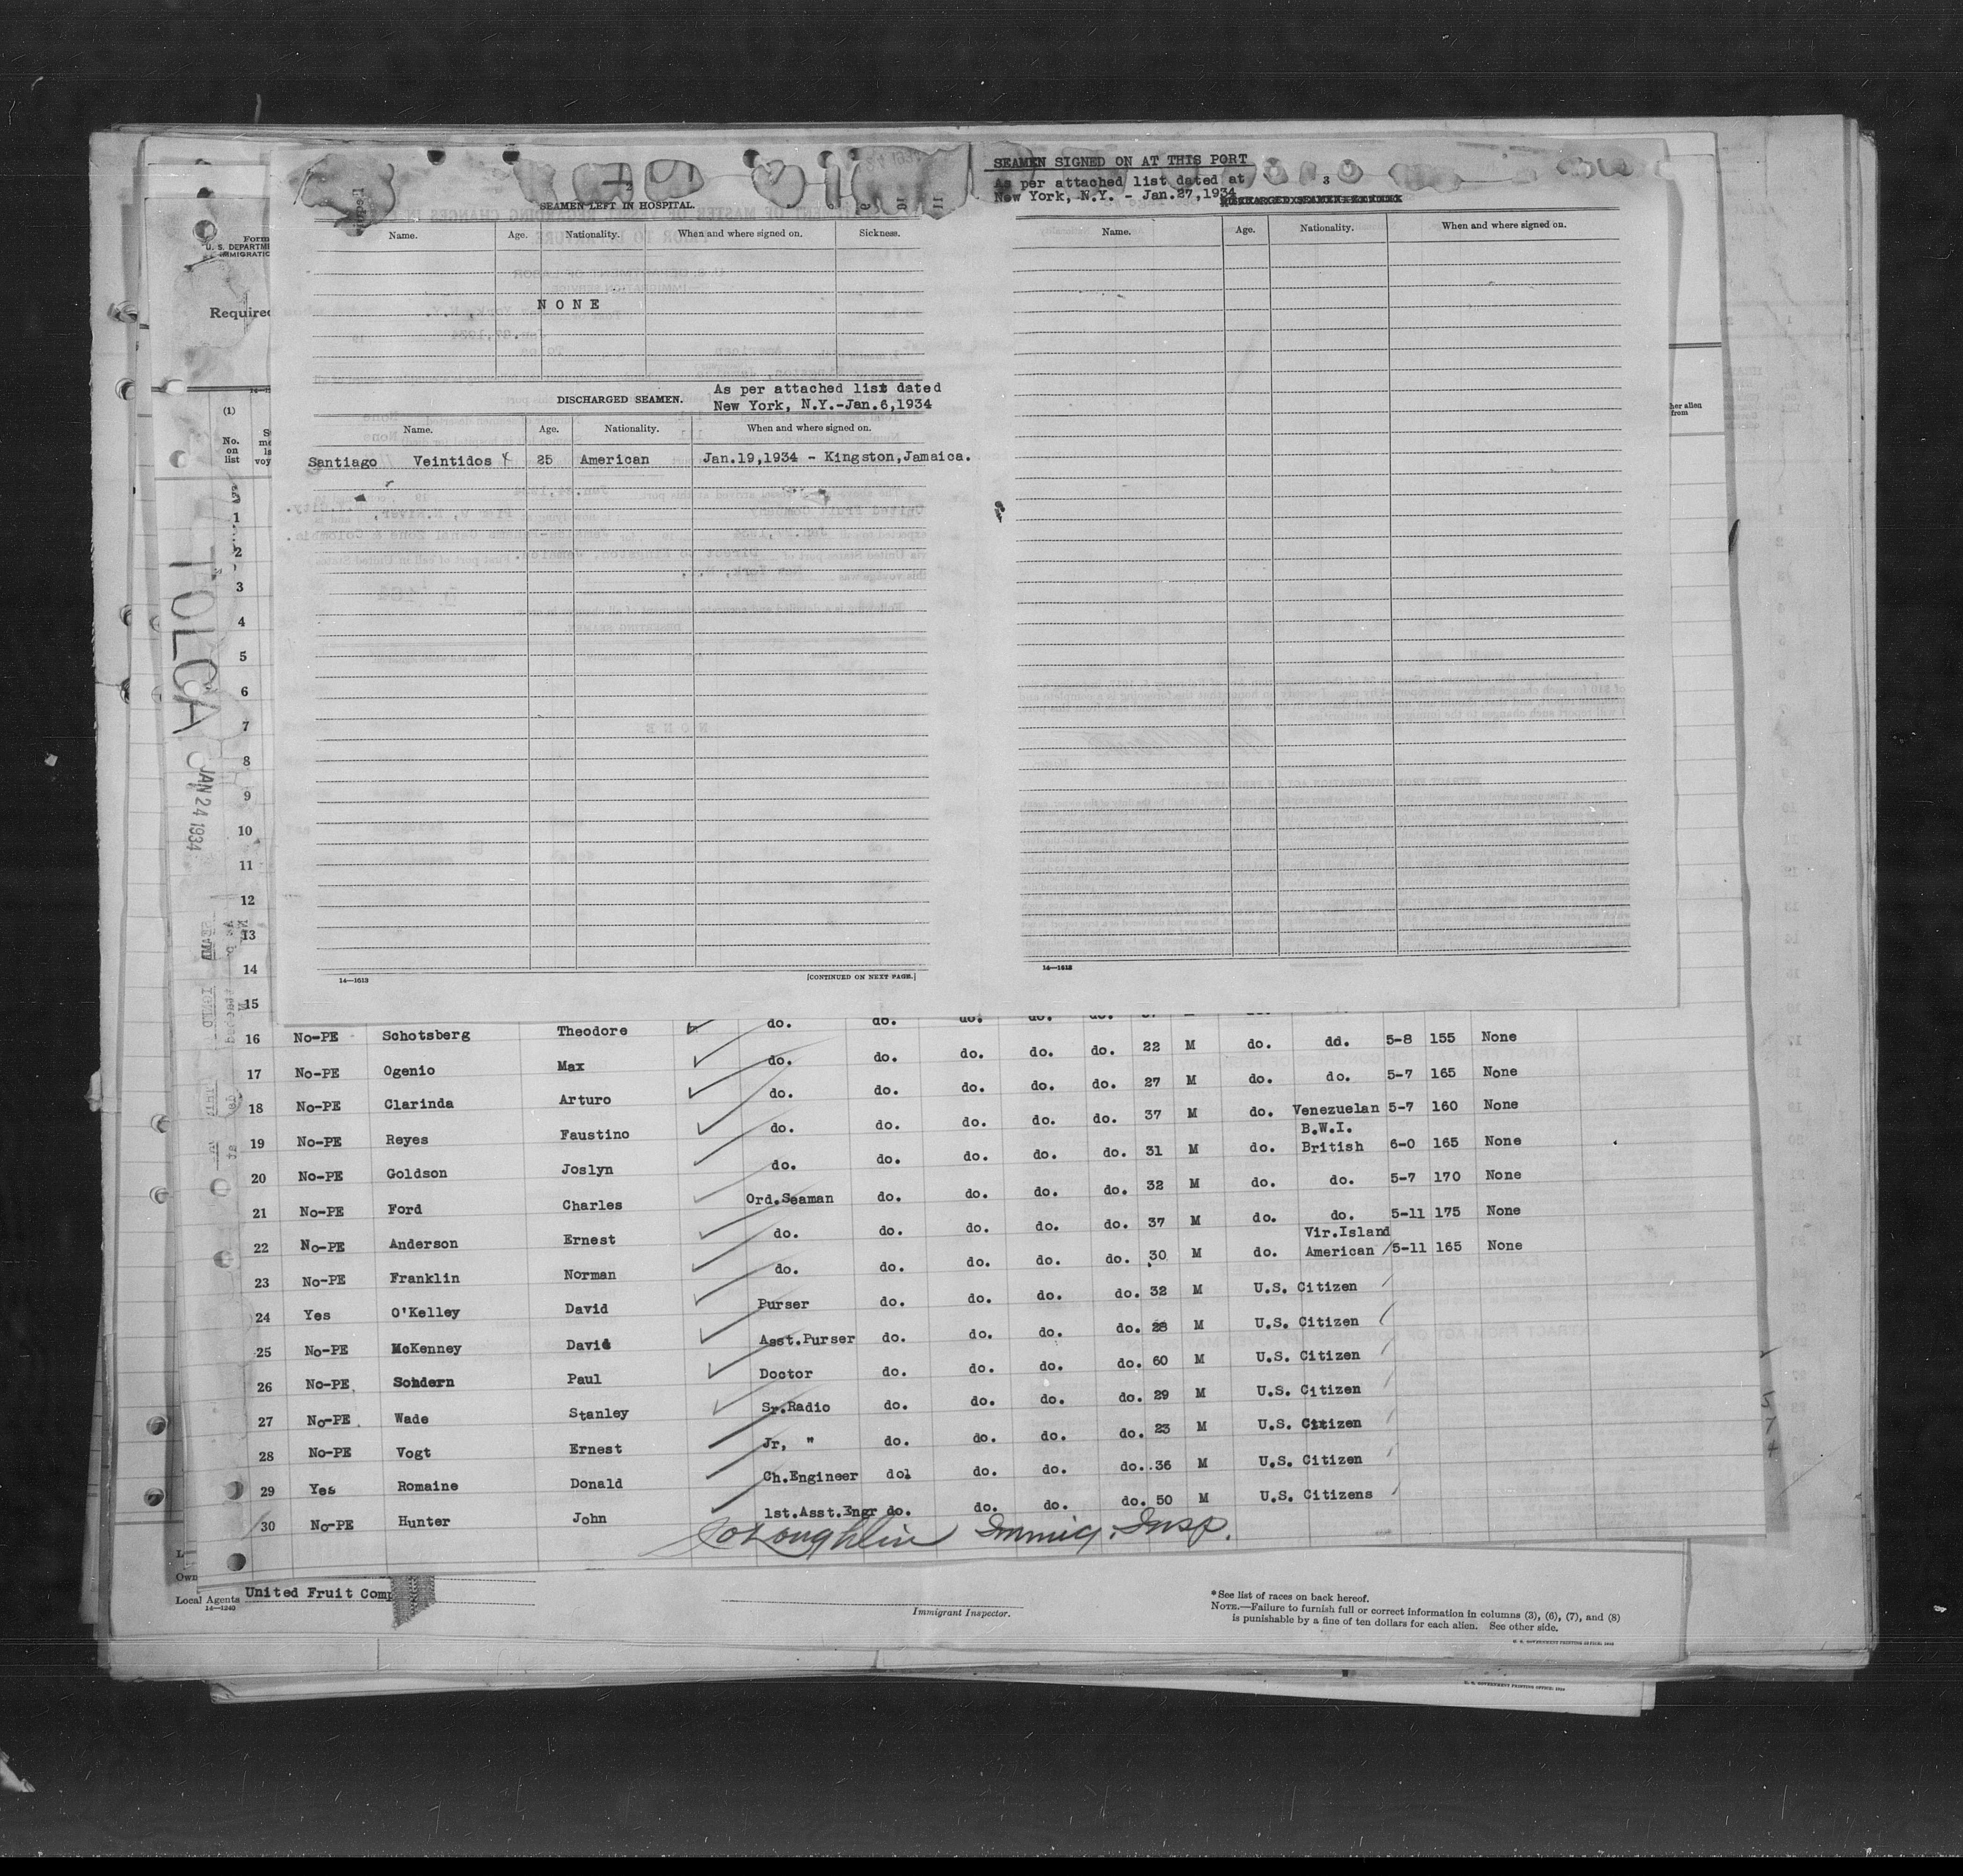 SEAMEN SIGNED ON AT THIS PORT
As per attached list dated at
New York, N.Y. - Jan.27,1934
2
3
SEAMEN LEFT IN HOSPITAL.
Name. Age. Nationality. When and where signed on. Sickness.
Name. Age. Nationality. When and where signed on.
NONE
As per attached list dated
New York, N.Y.-Jan.6,1934
DISCHARGED SEAMEN.
Name. Age. Nationality. When and where signed on.
Santiago Veintidos 25 American Jan.19,1934 - Kingston,Jamaica.
14—1613
[CONTINUED ON NEXT PAGE.]
14—1613
Form
U. S. DEPARTM
IMMIGRATIO
Required
(1)
No.
on
list
TOLOA
JAN 24 1934
1
2
3
4
5
6
7
8
9
10
11
12
13
14
15
16 No-PE Schotsberg Theodore do. do. do. do. do.
17 No-PE Ogenio Max do. do. do. do. do. 22 M do. dd. 5-8 155 None
18 No-PE Clarinda Arturo do. do. do. do. do. 27 M do. do. 5-7 165 None
19 No-PE Reyes Faustino do. do. do. do. do. 37 M do. Venezuelan 5-7 160 None
B.W.I.
20 No-PE Goldson Joslyn do. do. do. do. do. 31 M do. British 6-0 165 None
21 No-PE Ford Charles Ord.Seaman do. do. do. do. 32 M do. do. 5-7 170 None
22 No-PE Anderson Ernest do. do. do. do. do. 37 M do. do. 5-11 175 None
Vir.Island
23 No-PE Franklin Norman do. do. do. do. do. 30 M do. American 5-11 165 None
24 Yes O'Kelley David Purser do. do. do. do. 32 M U.S. Citizen
25 No-PE McKenney David Asst.Purser do. do. do. do. 28 M U.S. Citizen
26 No-PE Sondern Paul Doctor do. do. do. do. 60 M U.S. Citizen
27 No-PE Wade Stanley Sr.Radio do. do. do. do. 29 M U.S. Citizen
28 No-PE Vogt Ernest Jr, " do. do. do. do. 23 M U.S. Citizen
29 Yes Romaine Donald Ch.Engineer do. do. do. do. 36 M U.S. Citizen
30 No-PE Hunter John 1st.Asst.Engr do. do. do. do. 50 M U.S. Citizens
Loughlin Immig. Insp.
Own
Local Agents United Fruit Comp
14—1240
Immigrant Inspector.
*See list of races on back hereof.
NOTE.—Failure to furnish full or correct information in columns (3), (6), (7), and (8)
is punishable by a fine of ten dollars for each alien. See other side.
U. S. GOVERNMENT PRINTING OFFICE